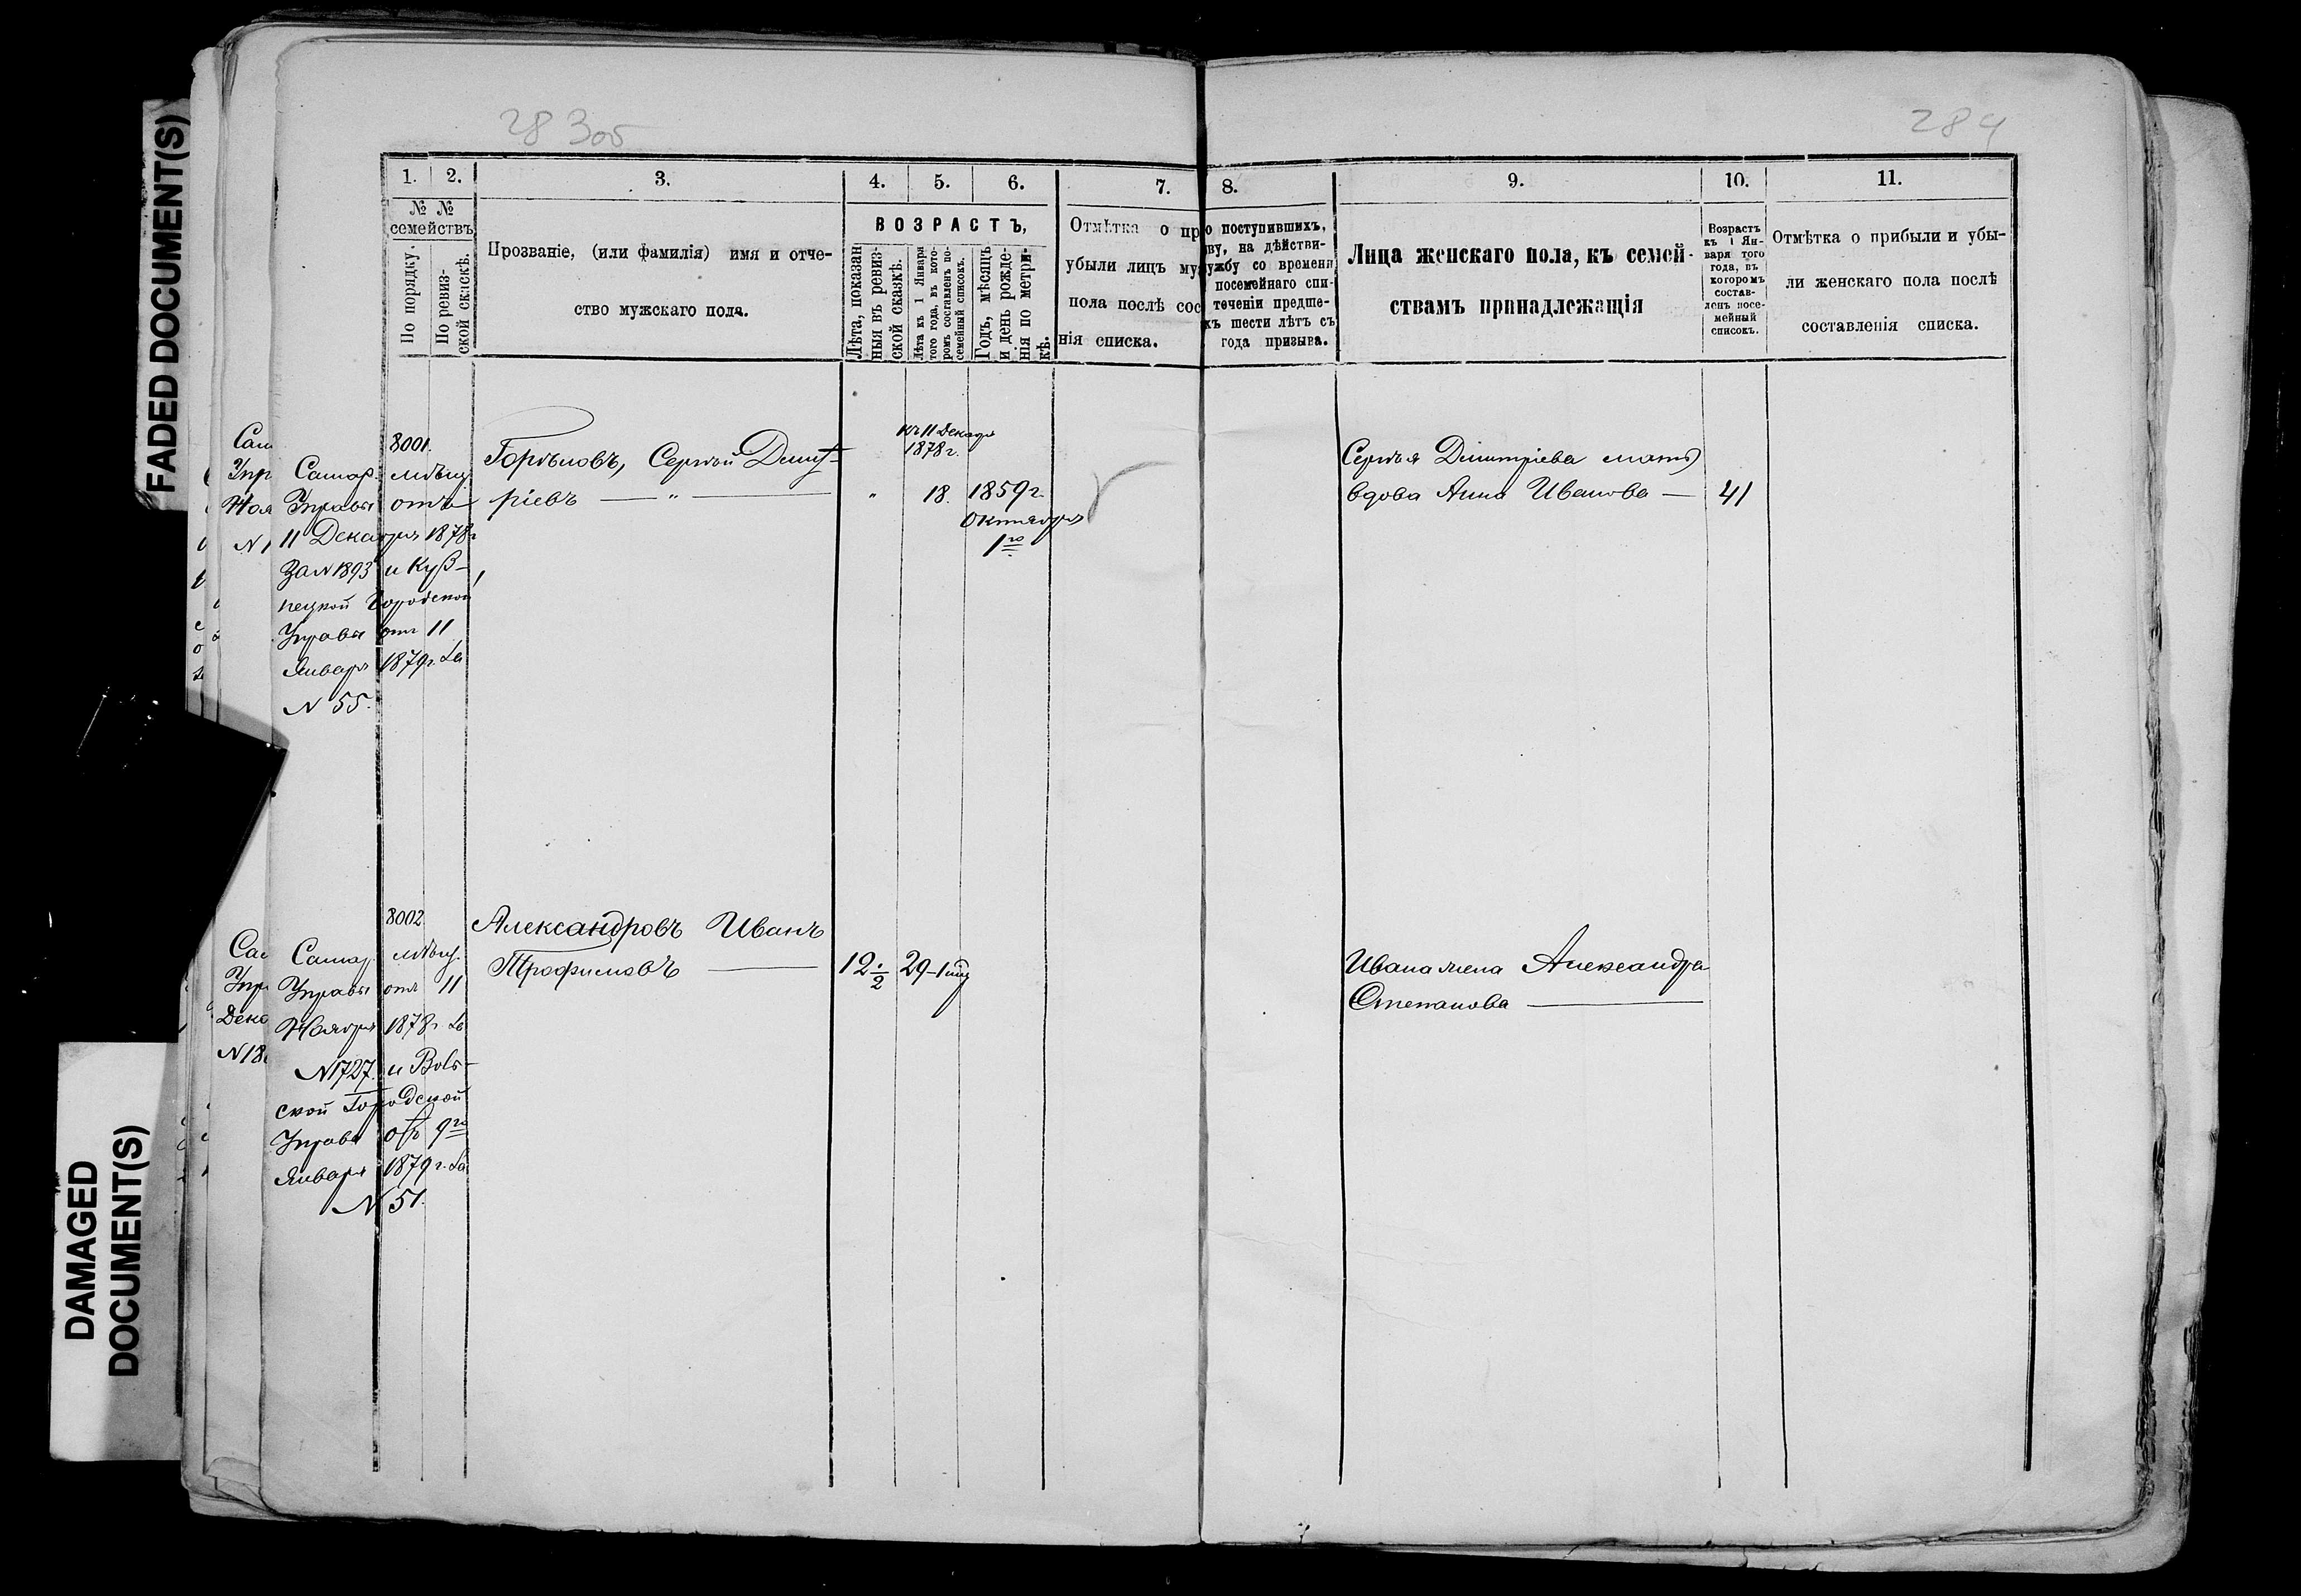 FADED DOCUMENT(S)
DAMAGED
DOCUMENT(S)
283об
284
1. 2. 3. 4. 5. 6. 7. 8. 9. 10. 11.
№ №
семействъ
По порядку.
По ревиз-
ской сказкѣ.
Прозваніе, (или фамилія) имя и отче-
ство мужскаго пола.
ВОЗРАСТЪ,
Лѣта, показан
ныя въ ревиз-
ской сказкѣ.
Лѣта къ 1 Января
того года, въ кото-
ромъ составленъ по-
семейный списокъ.
Годъ, мѣсяцъ
и день рожде-
нія по метри-
кѣ.
Отмѣтка о пр
убыли лицъ му
пола послѣ сос
нія списка.
о поступившихъ,
ву, на дѣйстви-
ужбу со времени
посемейнаго спи-
теченіи предше-
хъ шести лѣтъ съ
года призыва.
Лица женскаго пола, къ семей-
ствамъ принадлежащія
Возрастъ
къ 1 Ян-
варя того
года, въ
которомъ
состав-
ленъ посе-
мейный
списокъ.
Отмѣтка о прибыли и убы-
ли женскаго пола послѣ
составленія списка.
8001.
Самар. мѣщ.
Управы отъ
11 Декабря 1878г
за N 1893 и Куз-
нецкой Городской
Управы отъ 11
Января 1879г. за
N 55.
Сергѣй Дмит-
ріевъ — " —
"
къ 11 Декабря
1878г.
18.
1859г.
Октября
1го
Сергѣя Димитріева мать
вдова Анна Иванова —
41
8002
Самар. мѣщ.
Управы отъ 11
Ноября 1878г за
N 1727. и Воль-
ской Городской
Управы отъ 9го
Января 1879г. за
N 51.
Александровъ Иванъ
Трофимовъ —
12 1/2
29
Ивана жена Александра
Степанова —
Сам
Упр
Ноя
N 1
Сам
Упр
Дека
N 18